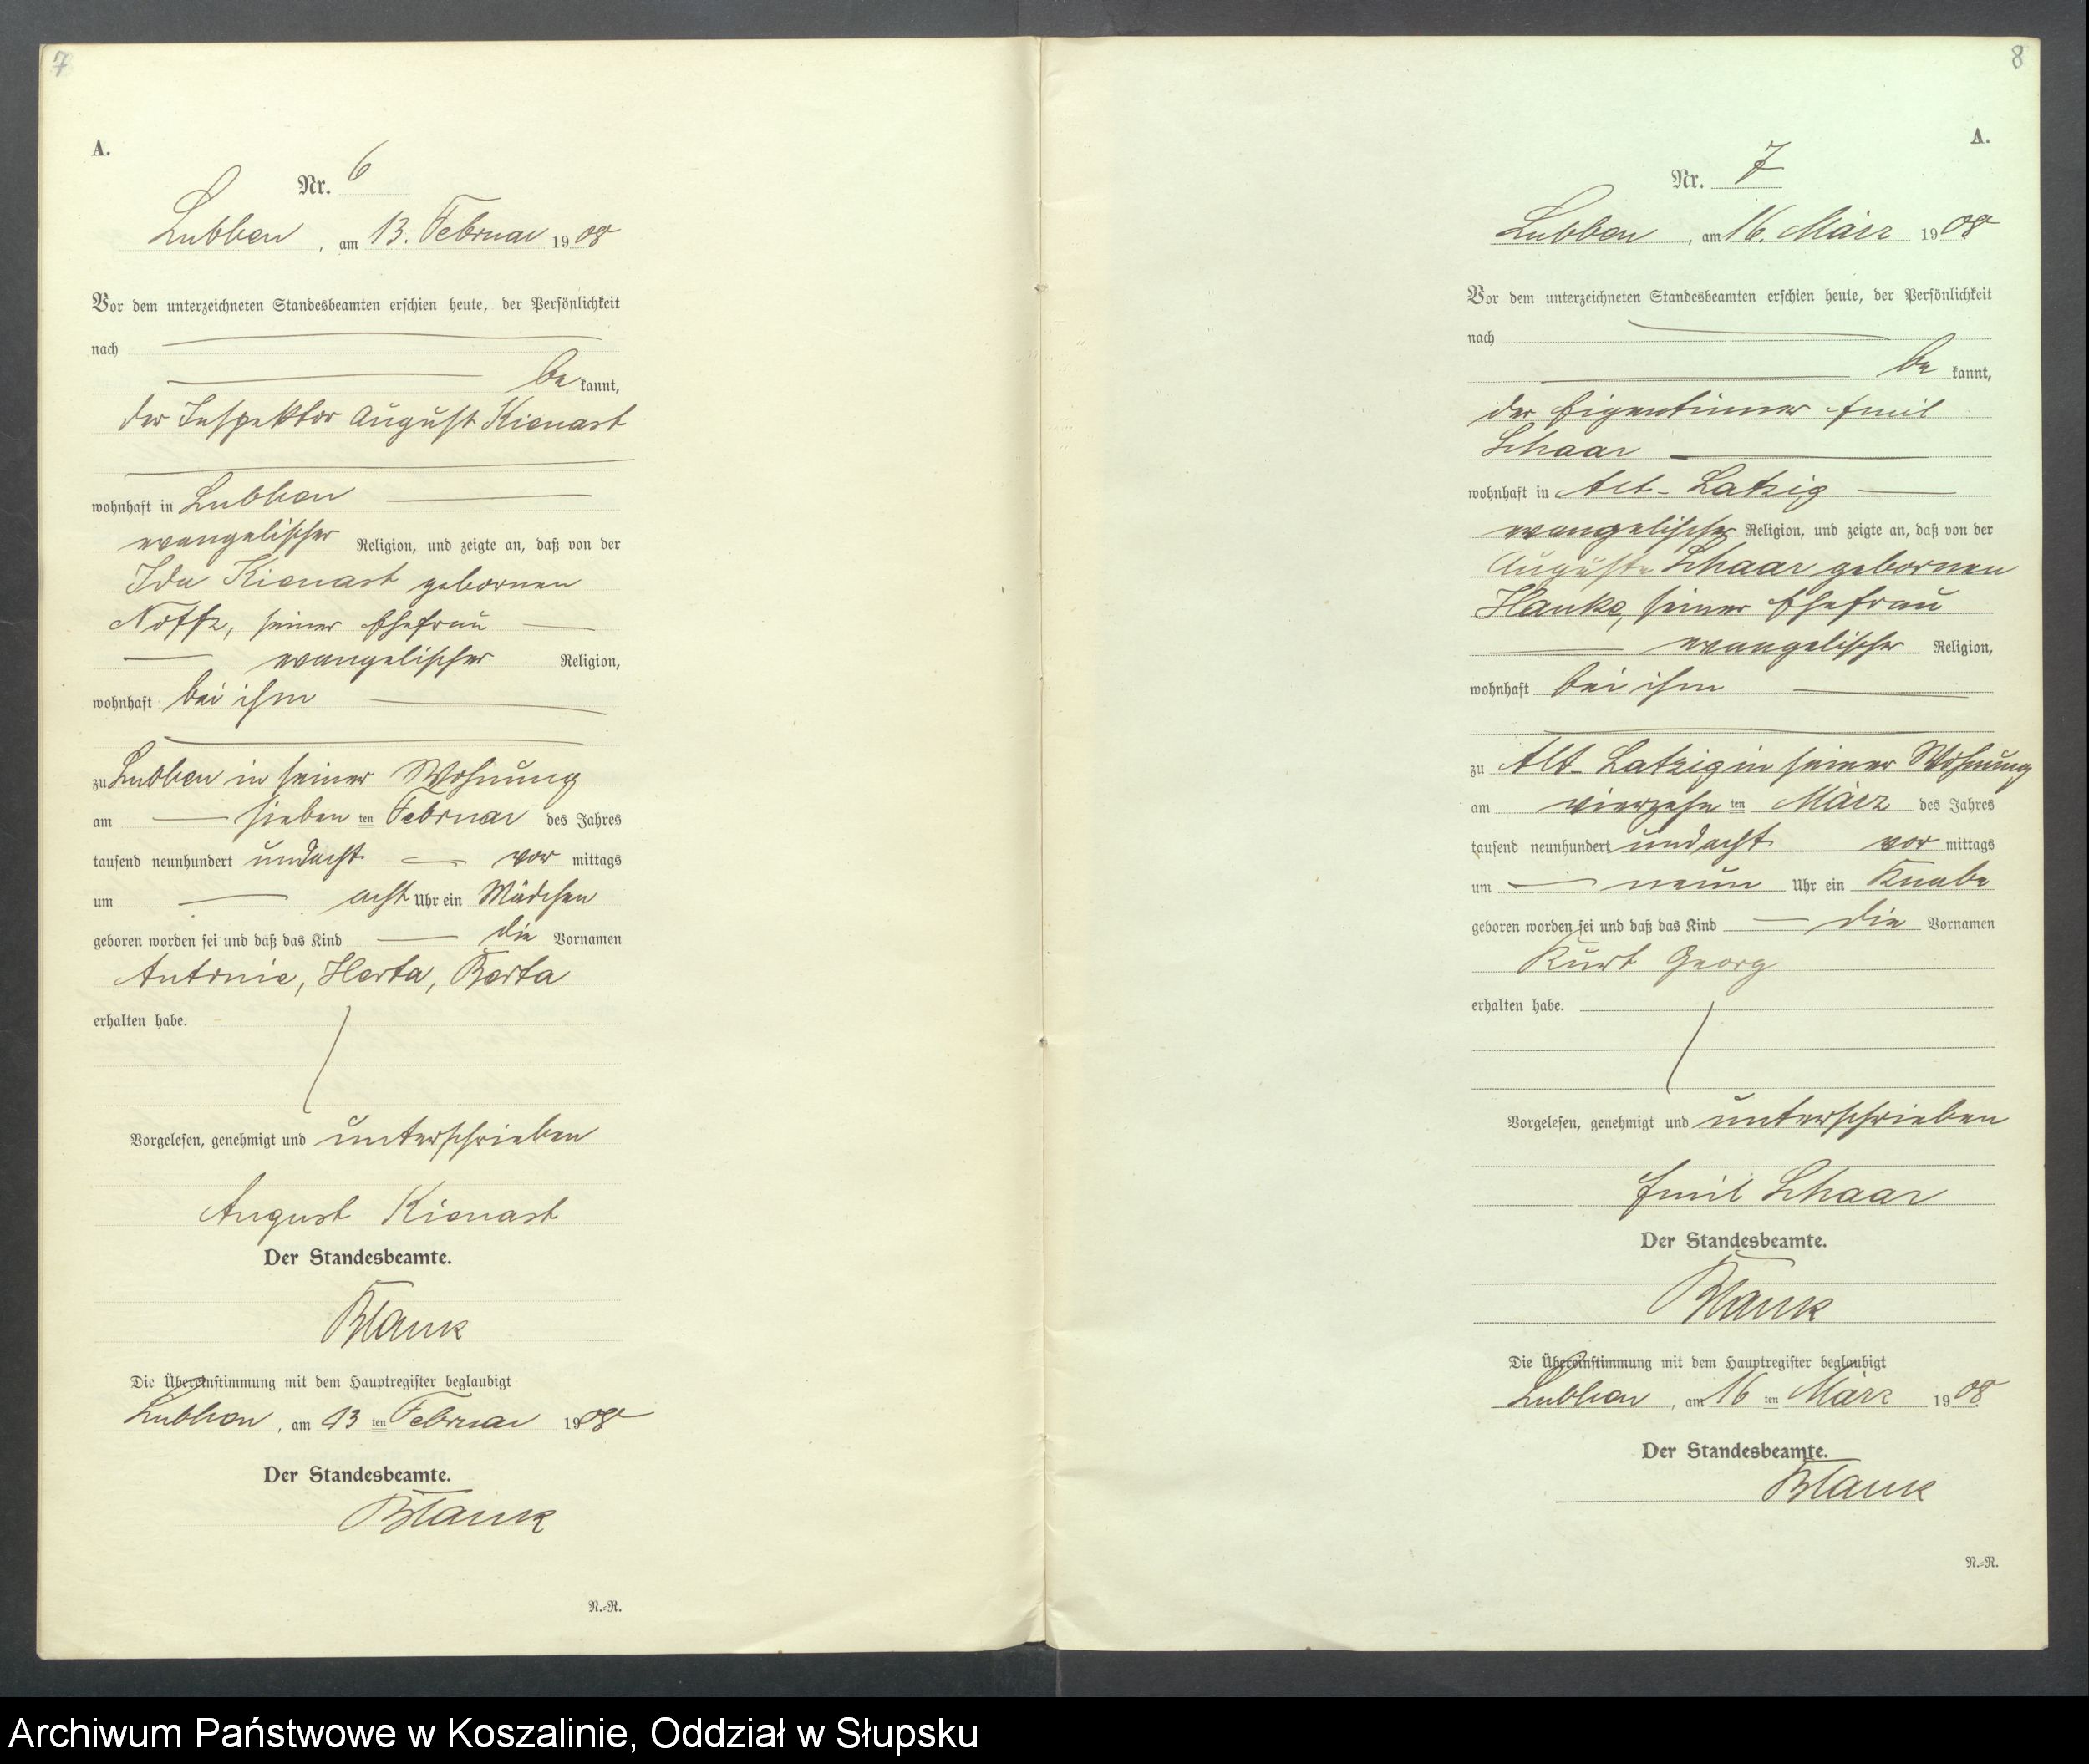 7
A.
Nr. 6
Lubben, am 13. Februar 1908
Vor dem unterzeichneten Standesbeamten erschien heute, der Persönlichkeit
nach
be kannt,
der Inspektor August Kienast
wohnhaft in Lubben
evangelischer Religion, und zeigte an, daß von der
Ida Kienast gebornen
seiner Ehefrau
evangelischer Religion,
wohnhaft bei ihm
zu Lubben in seiner Wohnung
am sieben ten Februar des Jahres
tausend neunhundert undacht vor mittags
um acht Uhr ein Mädchen
geboren worden sei und daß das Kind die Vornamen
Antonie, Herta, Berta
erhalten habe.
Vorgelesen, genehmigt und unterschrieben
August Kienast
Der Standesbeamte.
Blank
Die Übereinstimmung mit dem Hauptregister beglaubigt
Lubben, am 13 ten Februar 1908
Der Standesbeamte.
Blank
N.=R.
8
A.
Nr. 7
Lubben, am 16. März 1908
Vor dem unterzeichneten Standesbeamten erschien heute, der Persönlichkeit
nach
be kannt,
der Eigentümer Emil
Schaar
wohnhaft in Alt-Latzig
evangelischer Religion, und zeigte an, daß von der
Auguste Schaar gebornen
Hanke, seiner Ehefrau
evangelischer Religion,
wohnhaft bei ihm
zu Alt-Latzig in seiner Wohnung
am vierzehn ten März des Jahres
tausend neunhundert undacht vor mittags
um neun Uhr ein Knabe
geboren worden sei und daß das Kind die Vornamen
Kurt Georg
erhalten habe.
Vorgelesen, genehmigt und unterschrieben
Emil Schaar
Der Standesbeamte.
Blank
Die Übereinstimmung mit dem Hauptregister beglaubigt
Lubben, am 16 ten März 1908.
Der Standesbeamte.
Blank
N.=R.
Archiwum Państwowe w Koszalinie, Oddział w Słupsku